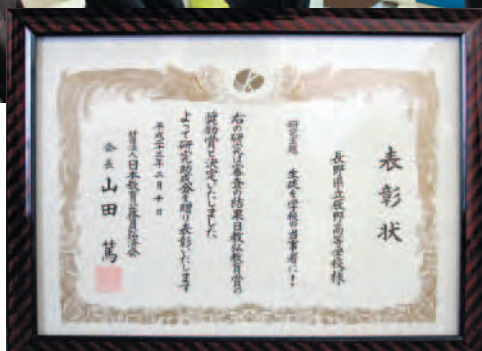 表彰状
長野県立坂野高等学校様
研究主題 生徒を学校の当事者に!
右の研究は審査の結果日教弘教育賞の
奨励賞と決定いたしました
よって研究助成金を贈り表彰いたします
平成二十三年二月十日
財団法人日本教育公務員弘済会
会長 山田 篤